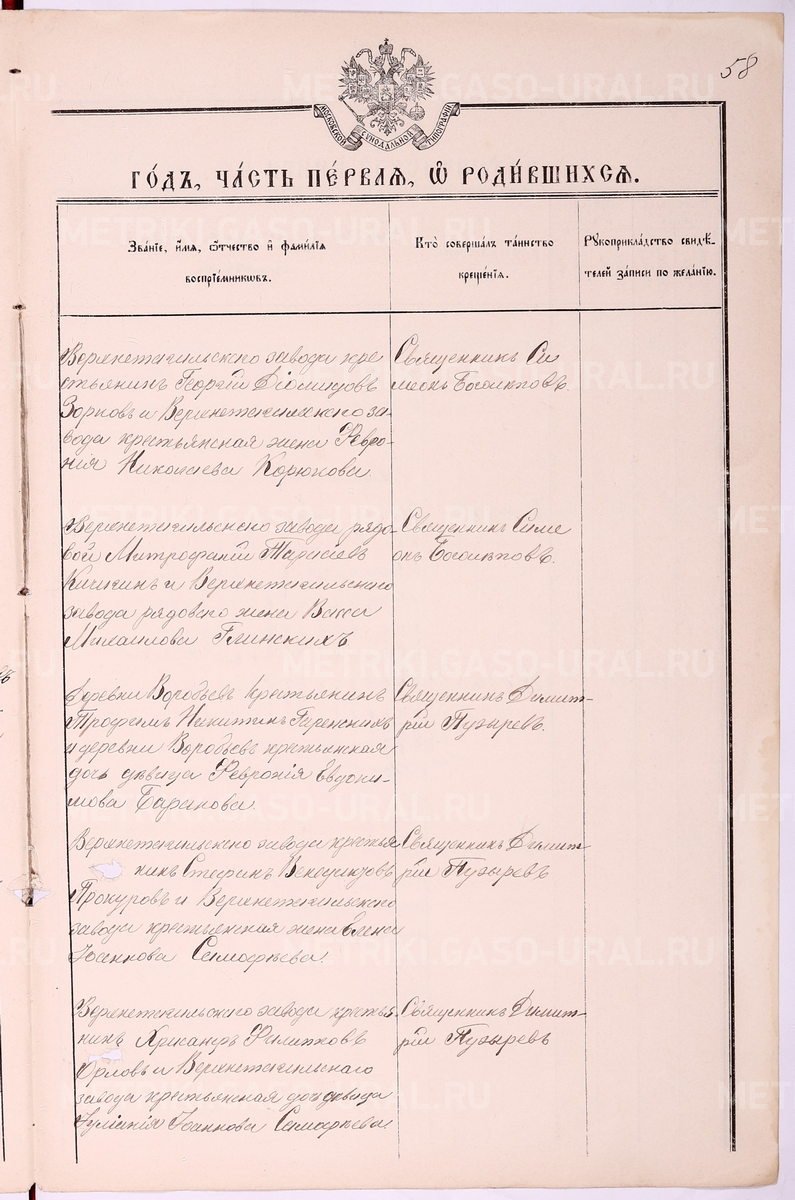 58
МОСКОВСКОЙ СѴНОДАЛЬНОЙ ТИПОГРАФІИ
ГО́ДЪ, ЧА́СТЬ ПЕ́РВАЯ, Ѡ҆ РОДИ́ВШИХСЯ.
Зва́нїе, и҆́мя, ѻ҆́тчество и҆ фами́лїя
воспрїе́мниковъ.
Кто̀ соверша́лъ та́инство
креще́нїя.
Рꙋкоприкла́дство свидѣ́-
телей за́писи по жела́нїю.
Верхнетагильскаго завода кре
стьянинъ Георгій Діомидовъ
Зорковъ и Верхнетагильскаго за-
вода крестьянская жена Февро-
нія Николаева Корюкова
Священникъ Си
меонъ Боголѣповъ.
Верхнетагильскаго завода рядо-
вой Митрофаній Тарасіевъ
Кичигинъ и Верхнетагильскаго
завода рядового жена Васса
Михаилова Глинскихъ
Священникъ Симе
онъ Боголѣповъ.
Деревни Воробьевъ крестьянинъ
Трофимъ Никитинъ
и деревни Воробьевъ крестьянская
дочь дѣвица Февронія Евдоки-
мова Баранова.
Священникъ Димит-
рій Пузыревъ.
Верхнетагильскаго завода крестья
нинъ Стефанъ Венедиктовъ
Прокуровъ и Верхнетагильскаго
завода крестьянская жена Елена
Іоаннова
Священникъ Димит-
рій Пузыревъ
Верхнетагильскаго завода крестья-
нинъ Хрисанфъ Филипповъ
Орловъ и Верхнетагильскаго
завода крестьянская дочь дѣвица
Іуліанія Іоаннова
Священникъ Димит-
рій Пузыревъ
METRIKI.GASO-URAL.RU